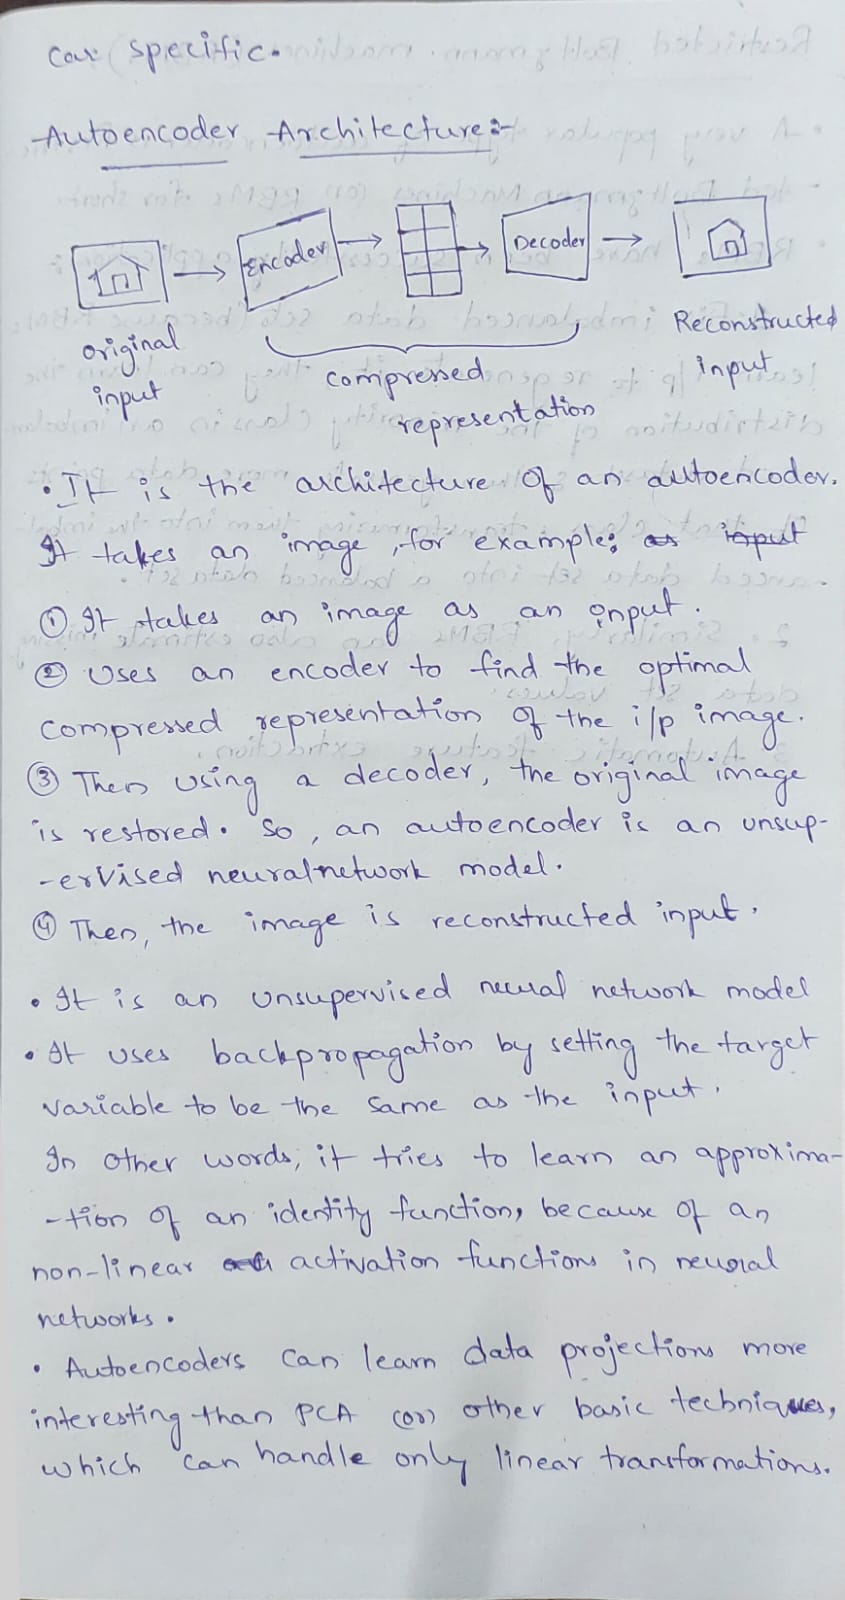 car specific.
Autoencoder Architecture:-
Encoder
Decoder
original input
compressed representation
Reconstructed input
• It is the architecture of an autoencoder.
It takes an image, for example; as input
① It takes an image as an input.
② Uses an encoder to find the optimal
compressed representation of the i/p image.
③ Then using a decoder, the original image
is restored. So, an autoencoder is an unsup-
-ervised neural network model.
④ Then, the image is reconstructed input.
• It is an unsupervised neural network model
• It uses backpropagation by setting the target
variable to be the same as the input.
In other words, it tries to learn an approxima-
-tion of an identity function, because of an
non-linear activation functions in neural
networks.
• Autoencoders can learn data projections more
interesting than PCA (or) other basic techniques,
which can handle only linear transformations.